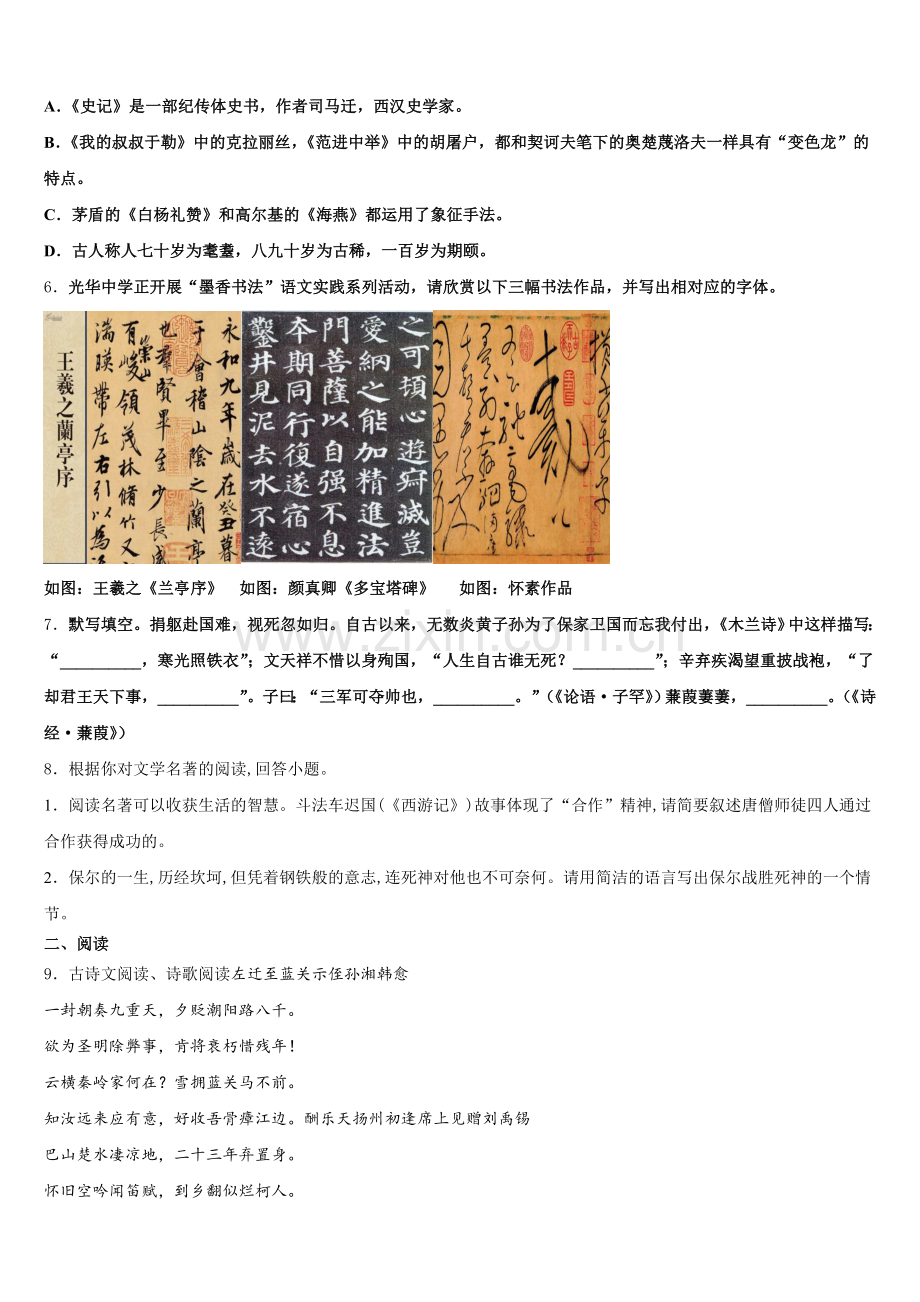 A．《史记》是一部纪传体史书，作者司马迁，西汉史学家。
B．《我的叔叔于勒》中的克拉丽丝，《范进中举》中的胡屠户，都和契诃夫笔下的奥楚蔑洛夫一样具有“变色龙”的
特点。
C．茅盾的《白杨礼赞》和高尔基的《海燕》都运用了象征手法。
D．古人称人七十岁为耄耋，八九十岁为古稀，一百岁为期颐。
6．光华中学正开展“墨香书法”语文实践系列活动，请欣赏以下三幅书法作品，并写出相对应的字体。
王羲之蘭亭序
永和九年歲在癸丑暮
于會稽山陰之蘭亭
也羣賢畢至少長咸
有崇山峻領茂林脩竹又
湍暎帶左右引以為流
之可頓心遊寂滅豈
愛納之能加精進法
門菩薩以自强不息
本期同行復遂宿心
鑿井見泥去水不遠
如图：王羲之《兰亭序》 如图：颜真卿《多宝塔碑》 如图：怀素作品
www.zixin.com.cn
7．默写填空。捐躯赴国难，视死忽如归。自古以来，无数炎黄子孙为了保家卫国而忘我付出，《木兰诗》中这样描写：
“__________，寒光照铁衣”；文天祥不惜以身殉国，“人生自古谁无死？__________”；辛弃疾渴望重披战袍，“了
却君王天下事，__________”。子曰：“三军可夺帅也，__________。”（《论语·子罕》）蒹葭萋萋，__________。（《诗
经·蒹葭》）
8．根据你对文学名著的阅读,回答小题。
1．阅读名著可以收获生活的智慧。斗法车迟国(《西游记》)故事体现了“合作”精神,请简要叙述唐僧师徒四人通过
合作获得成功的。
2．保尔的一生,历经坎坷,但凭着钢铁般的意志,连死神对他也不可奈何。请用简洁的语言写出保尔战胜死神的一个情
节。
二、阅读
9．古诗文阅读、诗歌阅读左迁至蓝关示侄孙湘韩愈
一封朝奏九重天，夕贬潮阳路八千。
欲为圣明除弊事，肯将衰朽惜残年！
云横秦岭家何在？雪拥蓝关马不前。
知汝远来应有意，好收吾骨瘴江边。酬乐天扬州初逢席上见赠刘禹锡
巴山楚水凄凉地，二十三年弃置身。
怀旧空吟闻笛赋，到乡翻似烂柯人。